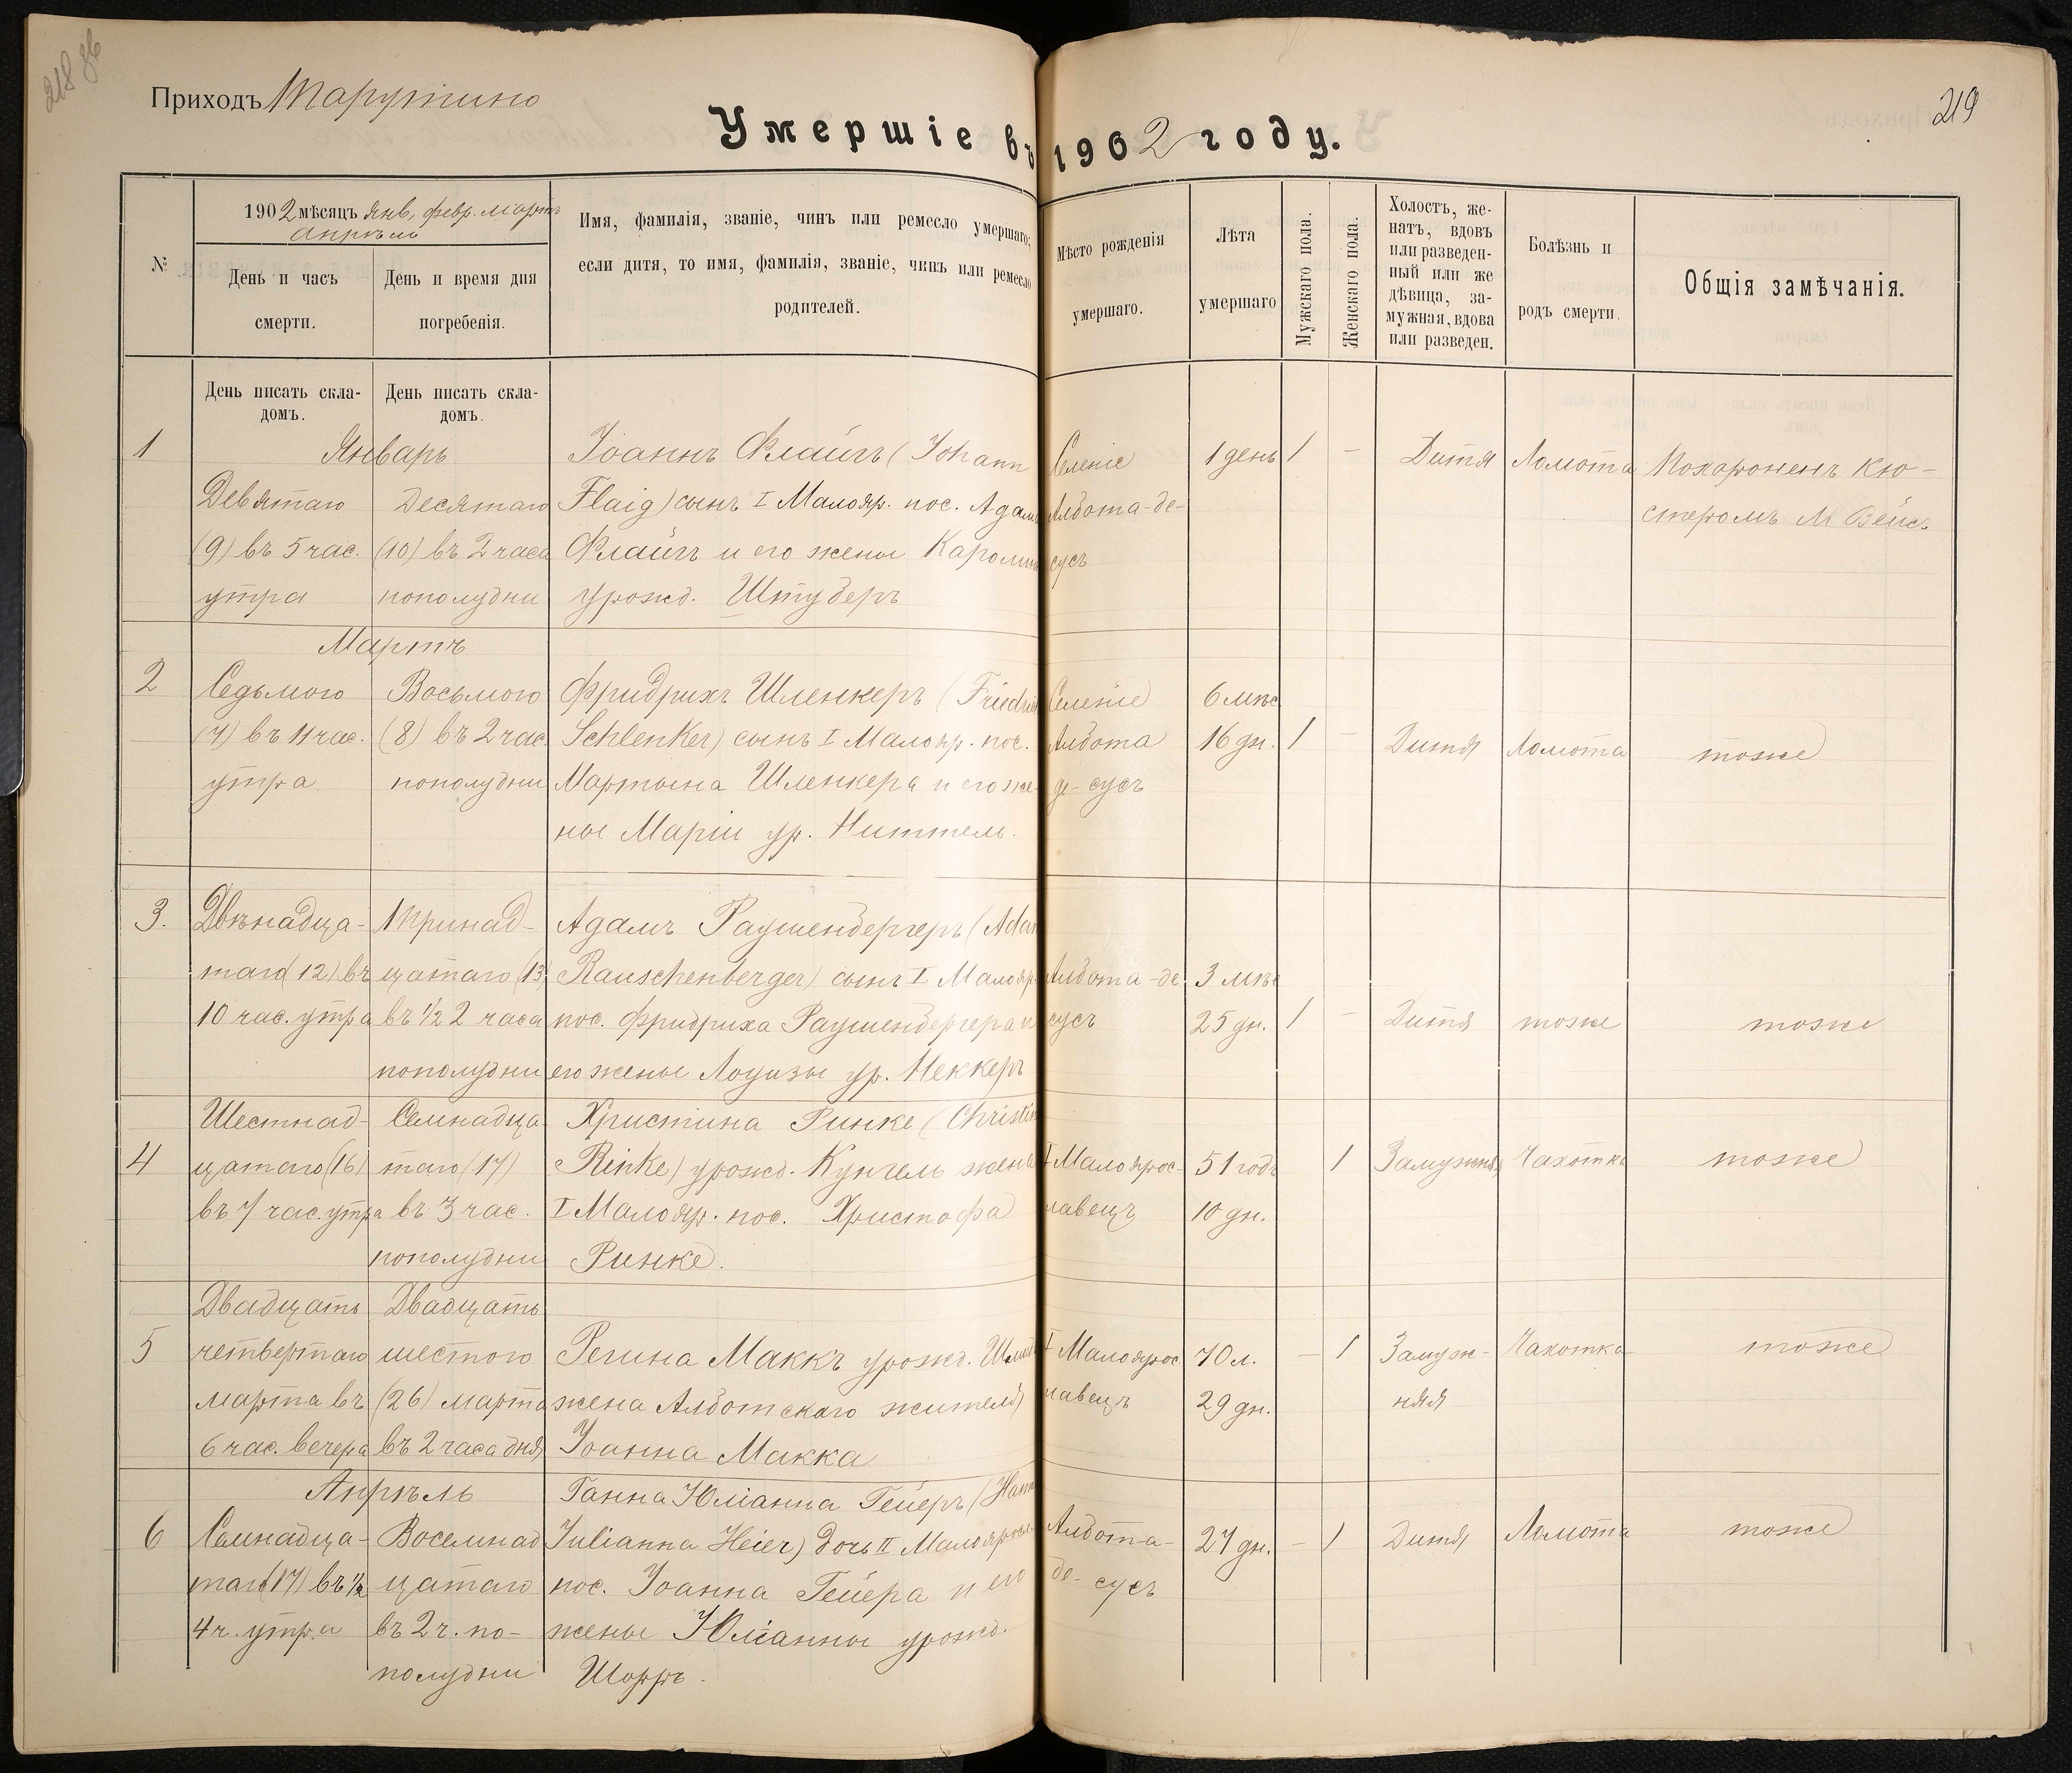 218 об
Приходъ Тарутино
Умершіе въ 1902 году.
219
№
1902 мѣсяцъ Янв, февр. Мартъ
Апрѣль
День и часъ
смерти.
День и время дня
погребенія.
Имя, фамилія, званіе, чинъ или ремесло умершаго;
если дитя, то имя, фамилія, званіе, чинъ или ремесло
родителей.
Мѣсто рожденія
умершаго.
Лѣта
умершаго
Мужскаго пола.
Женскаго пола.
Холостъ, же-
натъ, вдовъ
или разведен-
ный или же
дѣвица, за-
мужная, вдова
или разведен.
Болѣзнь и
родъ смерти.
Общія замѣчанія.
День писать скла-
домъ.
День писать скла-
домъ.
1
Январь
Девятаго
(9) въ 5 час.
утра
Десятаго
(10) въ 2 часа
пополудни
Іоаннъ Флайгъ (Johann
Flaig) сынъ I Малояр. пос. Адама
Флайгъ и его жены Каролины
урожд. Штудеръ
Селеніе
Албота-де-
сусъ
1 день
1
-
Дитя
Ломота
Похороненъ Кю-
стеромъ М Вейс.
Мартъ
2
Седьмого
(7) въ 11 час.
утра
Восьмого
(8) въ 2 час.
пополудни
Фридрихъ Шленкеръ (Friedrich
Schlenker) сынъ I Малояр. пос.
Мартына Шленкера и его же-
ны Маріи ур. Ниттель.
Селеніе
Албота
де-сусъ
6 мѣс
16 дн.
1
-
Дитя
Ломота
тоже
3.
Двѣнадца-
таго (12) въ
10 час. утра
Тринад-
цатаго (13)
въ ½ 2 часа
пополудни
Адамъ Раушенбергеръ (Adam
Rauschenberger) сынъ I Малояр.
пос. Фридриха Раушенбергера и
его жены Лоуизы ур. Неккеръ
Албота-де
сусъ
3 мѣс
25 дн.
1
-
Дитя
тоже
тоже
4
Шестнад-
цатаго (16)
въ 7 час. утра
Семнадца-
таго (17)
въ 3 час.
пополудни
Христина Ринке (Christin
Rinke) урожд. Кунгель жена
I Малояр. пос. Христофа
Ринке.
I Малоярос-
лавецъ
51 годъ
10 дн.
1
Замужняя
Чахотка
тоже
5
Двадцать
четвертаго
марта въ
6 час. вечера
Двадцать
шестого
(26) марта
въ 2 часа дня
Регина Маккъ урожд.
жена Алботскаго жителя
Іоанна Макка
I Малоярос
лавецъ
70 л.
29 дн.
-
1
Замуж-
няя
Чахотка
тоже
Апрѣль
6
Семнадца-
таго (17) въ ½
4 ч. утра
Восемнад
цатаго
въ 2 ч. по-
полудни
Ганна Юліанна Гейеръ (Hann
Julianna Heier) дочь II Малоярос
пос. Іоанна Гейера и его
жены Юліанны урожд.
Шорръ.
Албота-
де-сусъ
27 дн.
-
1
Дитя
Ломота
тоже